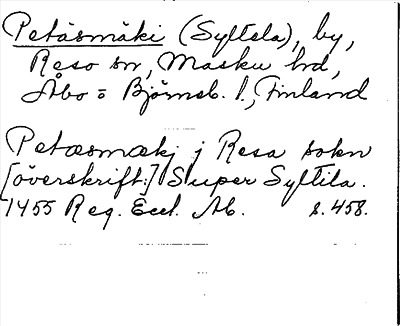 Petäsmäki (Syltela), by,
Reso sn, Masku hd,
Åbo = Björneb. l., Finland
Petæsmækj j Resa sokn
[överskrift:] Super Syltila.
1455 Reg. Eccl. Ab. s. 458.